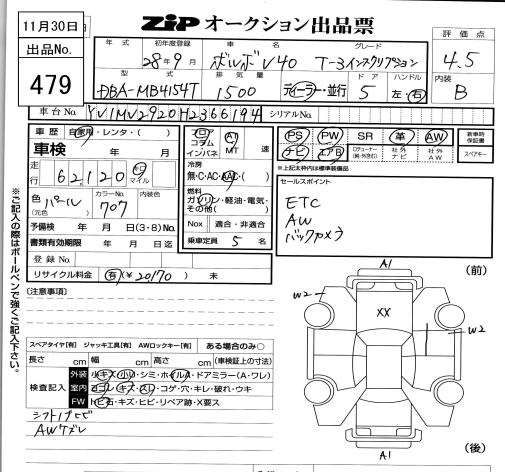 11月30日
出品No.
479
ZIP オークション出品票
年式
初年度登録
28年9月
車名
ボルボ V40
グレード
T-3インスクリプション
評価点
4.5
型式
DBA-MB4154T
排気量
1500
ディーラー・並行
ドア
5
ハンドル
左・右
内装
B
車台No.
YV1MV2920H2366194
シリアルNo.
車歴 自家用・レンタ・( )
車検 年 月
走行 62,120 キロ マイル
色 (元色) パール
カラーNo. 707
内装色
予備検 年 月 日(3・8)No.
書類有効期限 年 月 日迄
登録No.
リサイクル料金 有(¥20,170)未
フロア コラム インパネ
AT MT 速
冷房
無・C・AC・AAC・( )
燃料
ガソリン・軽油・電気・その他( )
Nox 適合・非適合
乗車定員 5 名
PS PW SR 革 AW
ナビ エアB
社外ナビ
社外AW
新車時保証書
スペアキー
※上記太枠内は標準装備品
セールスポイント
ETC
AW
バックカメラ
[注意事項]
スペアタイヤ[有] ジャッキ工具[有] AWロックキー[有] ある場合のみ○
長さ cm 幅 cm 高さ cm (車検証上の寸法)
検査記入
外装 小キズ・小凹・シミ・ホイルA・ドアミラー(A・ワレ)
室内 ヨゴレ・キズ・スレ・コゲ・穴・キレ・破れ・ウキ
FW トビ石・キズ・ヒビ・リペア跡・X要ス
AWズレ
(前)
A1
W2
XX
W2
A1
(後)
※ご記入の際はボールペンで強くご記入下さい。